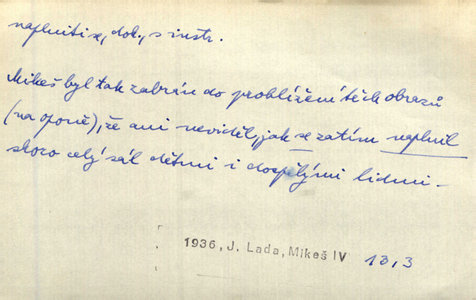 naplniti se, dok., s instr.
Mikeš byl tak zabrán do prohlížení těch obrazů
(na oponě), že ani neviděl, jak se zatím naplnil
skoro celý sál dětmi i dospělými lidmi -
1936, J. Lada, Mikeš IV 13,3